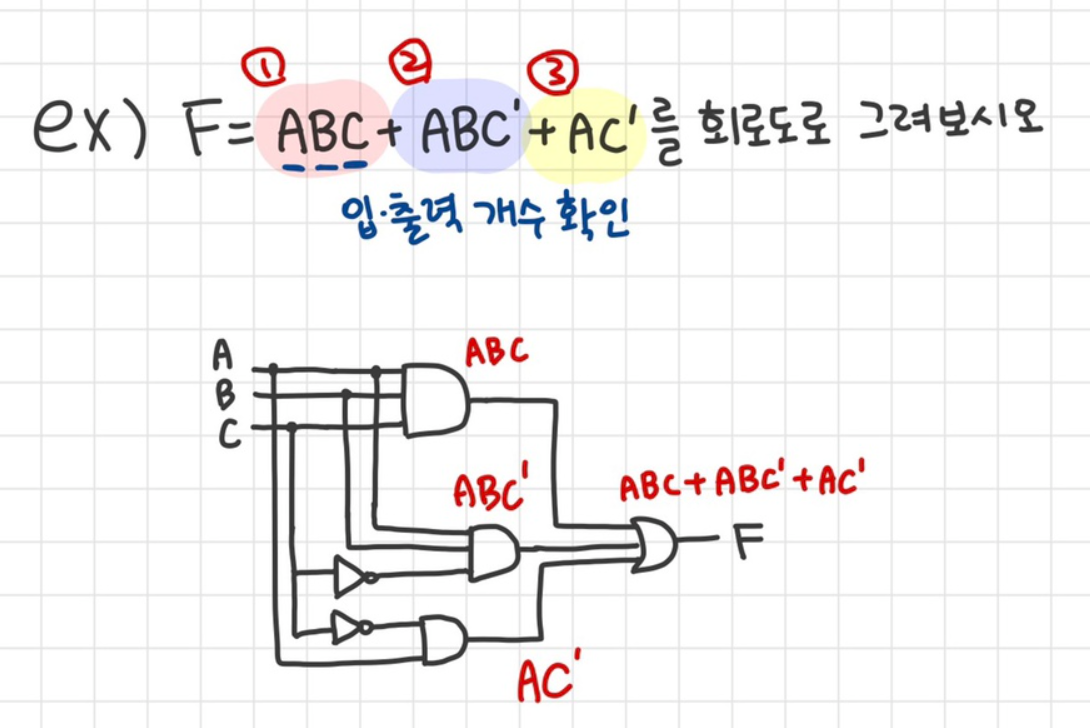 ① ② ③
ex) F = ABC + ABC' + AC' 를 회로도로 그려보시오
입·출력 개수 확인
A
B
C
ABC
ABC'
ABC + ABC' + AC'
F
AC'